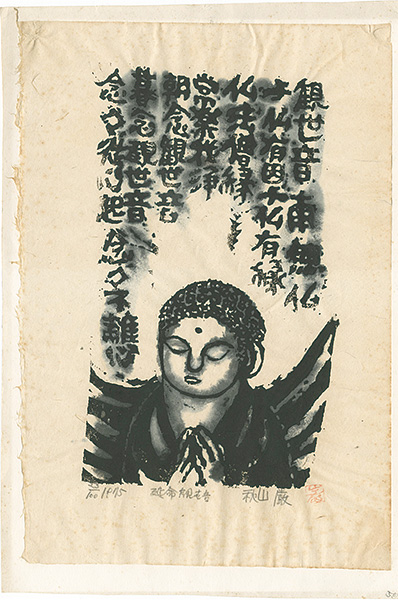 観世音南無仏
与仏有因与仏有縁
仏法僧縁
常楽我浄
朝念観世音
暮念観世音
念々従心起念々不離心
100 1975 延命観音 秋山巌